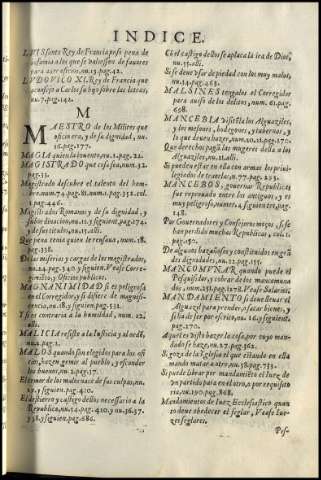 INDICE.
LUIS santo Rey de Francia puso pena de
infamia a los que se valiessen de fauores
para auer oficios, nu.13.pag.42.
LVDOVICO XI. Rey de Francia que
aconsejo a Carlos su hijo sobre las letras,
nu.7.pag.142.
M
MAESTRO de los Milites que
oficio era, y de su dignidad, nu.
16.pag.177.
MAGIA quien la inuento, nu.2.pag.22.
MAGISTRADO que cosa sea, num.32.
pag.15.
Magistrado descubre el talento del hom-
bre, num.74.pag.81.num.1.pag.352.col.
1.pag.446.
Magistrados Romanos y de su dignidad, y
subordinacion, nu.15.y siguient. pag.174.
y de sus titulos, nu.15.alli.
Que pena tenia quien le renusaua, num.18.
pag.338.
De las miserias y cargas de los magistrados,
nu.24.pag.340.y siguient. Vease Corre-
gimiento, y Oficios publicos.
MAGNANIMIDAD si es peligrosa
en el Corregidor, y si difiere de magnifi-
cencia, nu.18.y siguien.pag.132.
Y si es contraria a la humildad, num.22.
alli.
MALICIA resiste a la Iusticia y al orden,
nu.2.pag.1.
MALOS quando son elegidos para los ofi-
cios, hazen gemir al pueblo, y esconder
los buenos, nu.2.pag.17.
El temor de los males nace de sus culpas, nu.
29.y siguien.pag.410.
El destierro y castigo dellos necessario a la
Republica, nu.14.pag.410.y nu.36.37.
y 38.y siguient.pag.
Cõ el castigo dellos se aplaca la ira de Dios,
nu.35.alli.
Si se deue vsar de piedad con los muy malos,
nu.44.pag.
MALSINES tengalos el Corregidor
para auiso de los delitos, num.61.pag.
698.
MANCEBIA visite la los Alguaziles,
y los mesones, bodegones, y tabernas, y
lo que deuen hazer, num.10.11.pag.170.
Que derechos pagã las mugeres della a los
Alguaziles, nu.11.alli.
Si pueden estar en ella con armas los priui-
legiados de traerlas, n.77.pag.235.
MANCEBOS, gouernar Republicas
fue reprouado entre los antiguos, y es
muy peligroso, numer.4.y siguientes, pag.
148.
Por Gouernadores y Consejeros moços, si se
han perdido muchas Republicas, col.1.
pag.150.
De algunos bañazoños y constituidos en grã-
des dignidades, nu.22.pag.155.
MANCOMVNAR quando puede el
Pesquisidor, y cobrar de los mancomuna-
dos, num.251.pag.1278. Vease Salarios.
MANDAMIENTO si deue lleuar el
Alguazil para prender, o sacar bienes, y
si ha de ser por escrito, nu.16.y siguient.
pag.270.
A quiẽ se deue hazer la cosa, por cuyo man-
dado se haze, nu.37.pag.362.
Si goza de la Yglesia el que estando en ella
mandò matar a otro, nu.58.pag.735.
Si puede librar por mandamiẽto el Iuez de
vn partido para en el otro, o por requisito
ria, nu.190.pag.868.
Mandamientos de Iuez Ecclesiastico quan
to deue obedecer el seglar, Vease Iue-
zes seglares.
Pes-